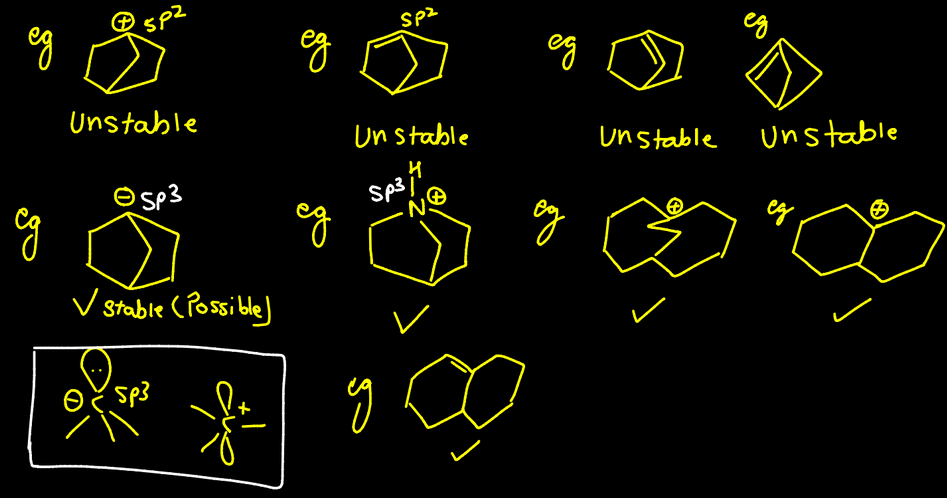 eg ⊕ sp2
Unstable
eg sp2
Unstable
eg
Unstable
eg
Unstable
eg ⊖ sp3
✓ stable (Possible)
eg sp3 H
N ⊕
✓
eg ⊕
✓
eg ⊕
✓
⊖ C sp3
C +
eg
✓